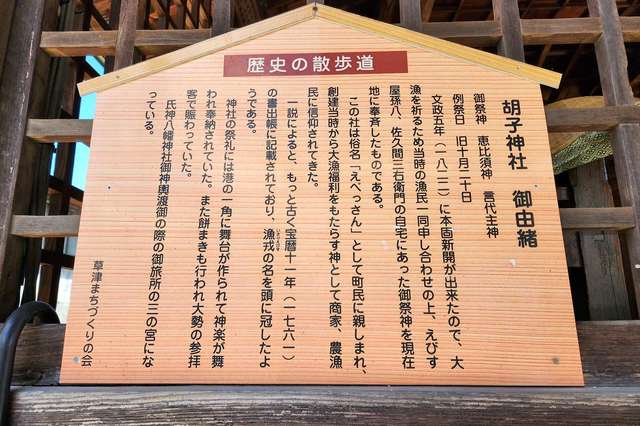 歴史の散歩道
胡子神社 御由緒
御祭神 恵比須神 言代主神
例祭日 旧十月二十日
文政五年(一八二二)に本固新開が出来たので、大
漁を祈るため当時の漁民一同申し合わせの上、えびす
屋孫八、佐久間三右衛門の自宅にあった御祭神を現在
地に奉斉したものである。
この社は俗名「えべっさん」として町民に親しまれ、
創建当時から大漁福利をもたらす神として商家、農漁
民に信仰されてきた。
一説によると、もっと古く宝暦十一年(一七六一)
の書出帳に記載されており、漁戎の名を頭に冠したよ
うである。
神社の祭礼には港の一角に舞台が作られて神楽が舞
われ奉納されていた。また餅まきも行われ大勢の参拝
客で賑わっていた。
氏神八幡神社御神輿渡御の際の御旅所の三の宮にな
っている。
草津まちづくりの会